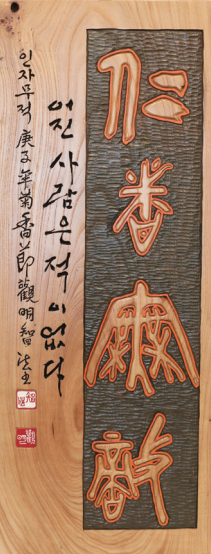 仁者無敵
어진 사람은 적이 없다
인자무적 庚子年菊香節 觀明智